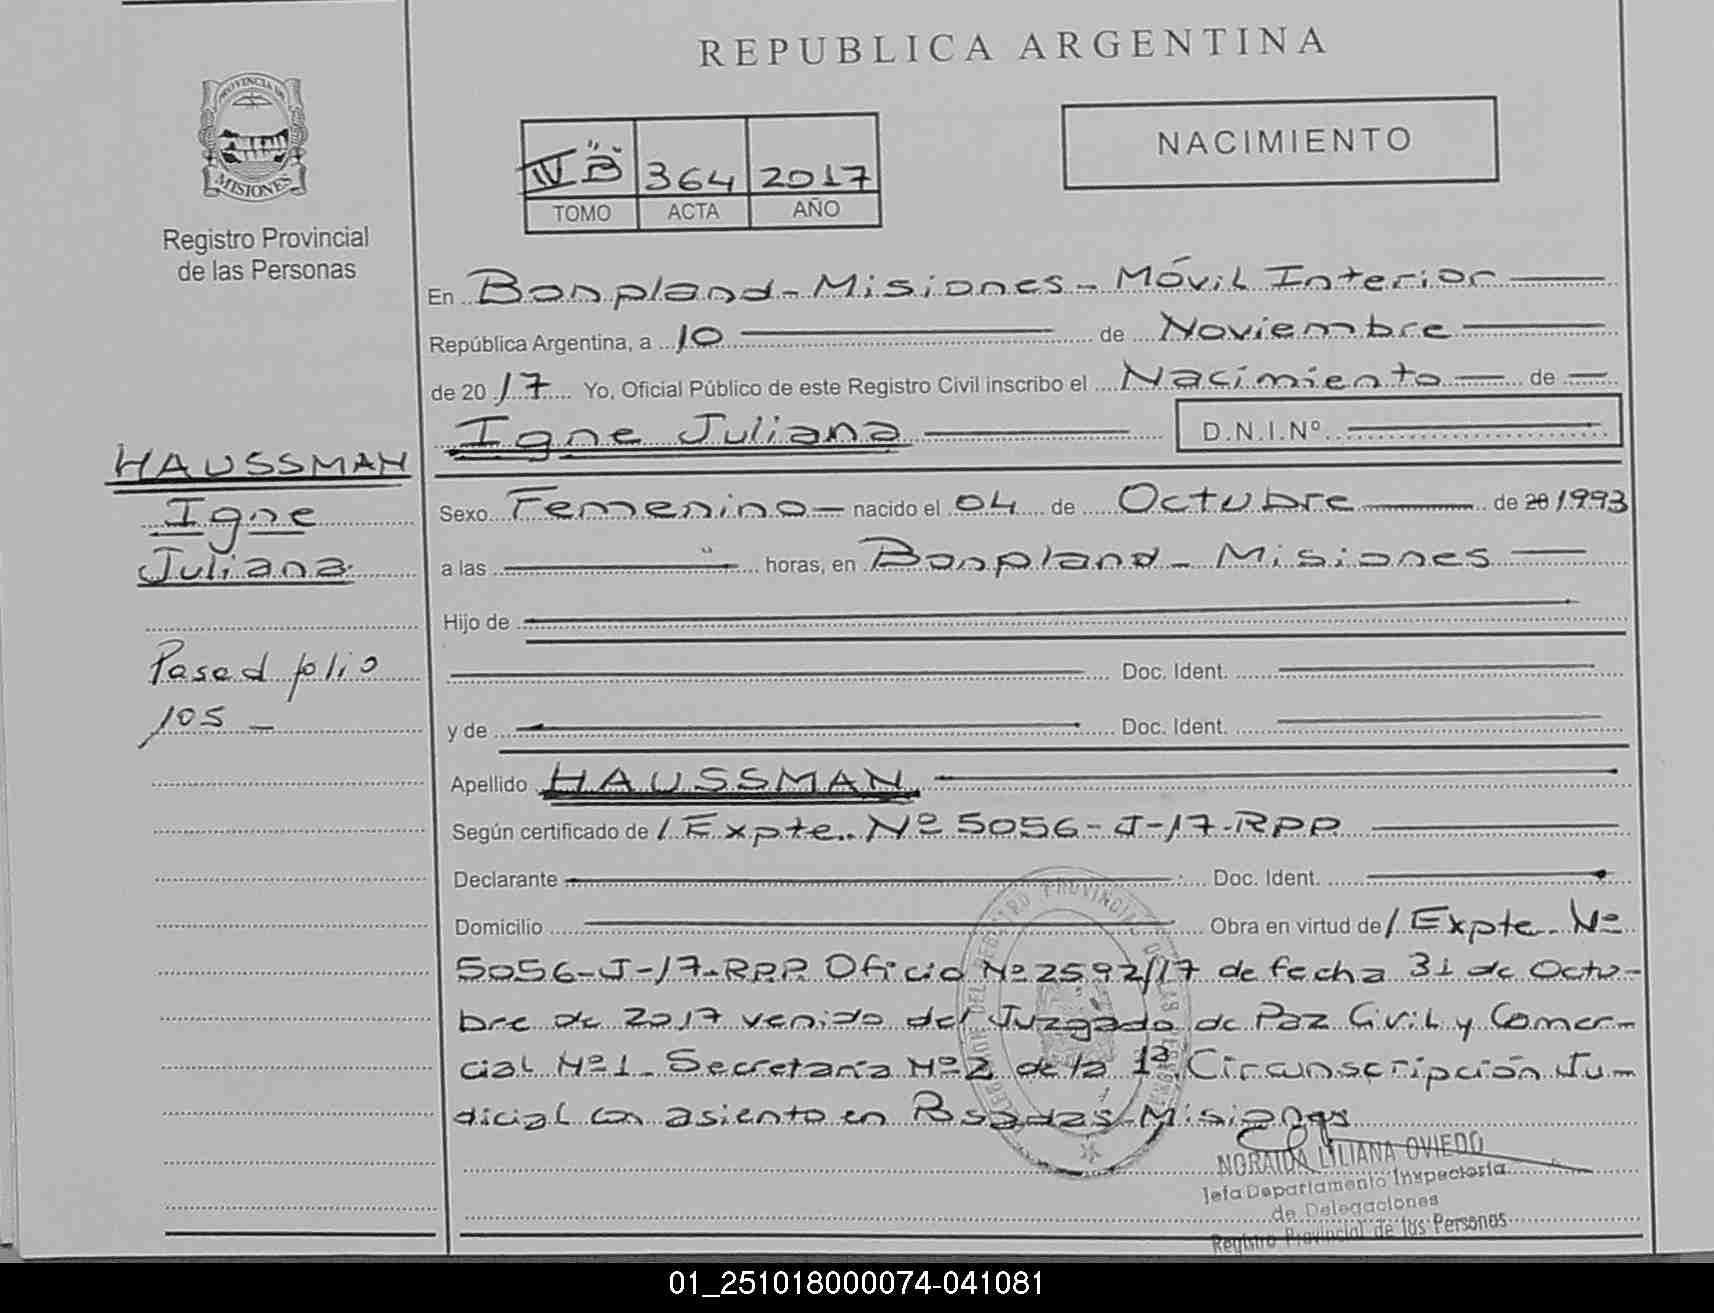 REPUBLICA ARGENTINA
PROVINCIA DE
MISIONES
Registro Provincial
de las Personas
NACIMIENTO
IV "B" 364 2017
TOMO ACTA AÑO
En Bonpland - Misiones - Móvil Interior
República Argentina, a 10 de Noviembre
de 2017 Yo, Oficial Público de este Registro Civil inscribo el Nacimiento de
Igne Juliana D.N.I.Nº
HAUSSMAN
Igne
Juliana
Pasa al folio
105 -
Sexo Femenino nacido el 04 de Octubre de 20 1993
a las horas, en Bonpland - Misiones
Hijo de
Doc. Ident.
y de Doc. Ident.
Apellido HAUSSMAN
Según certificado de / Expte. Nº 5056-J-17-RPP
Declarante Doc. Ident.
Domicilio Obra en virtud de / Expte. Nº
5056-J-17-RPP. Oficio Nº 2592/17 de fecha 31 de Octu-
bre de 2017 venido del Juzgado de Paz Civil y Comer-
cial Nº 1. Secretaría Nº 2 de la 1ª Circunscripción Ju-
dicial con asiento en Posadas - Misiones
NORAIDA LILIANA OVIEDO
Jefa Departamento Inspectoria
de Delegaciones
Registro Provincial de las Personas
01_251018000074-041081